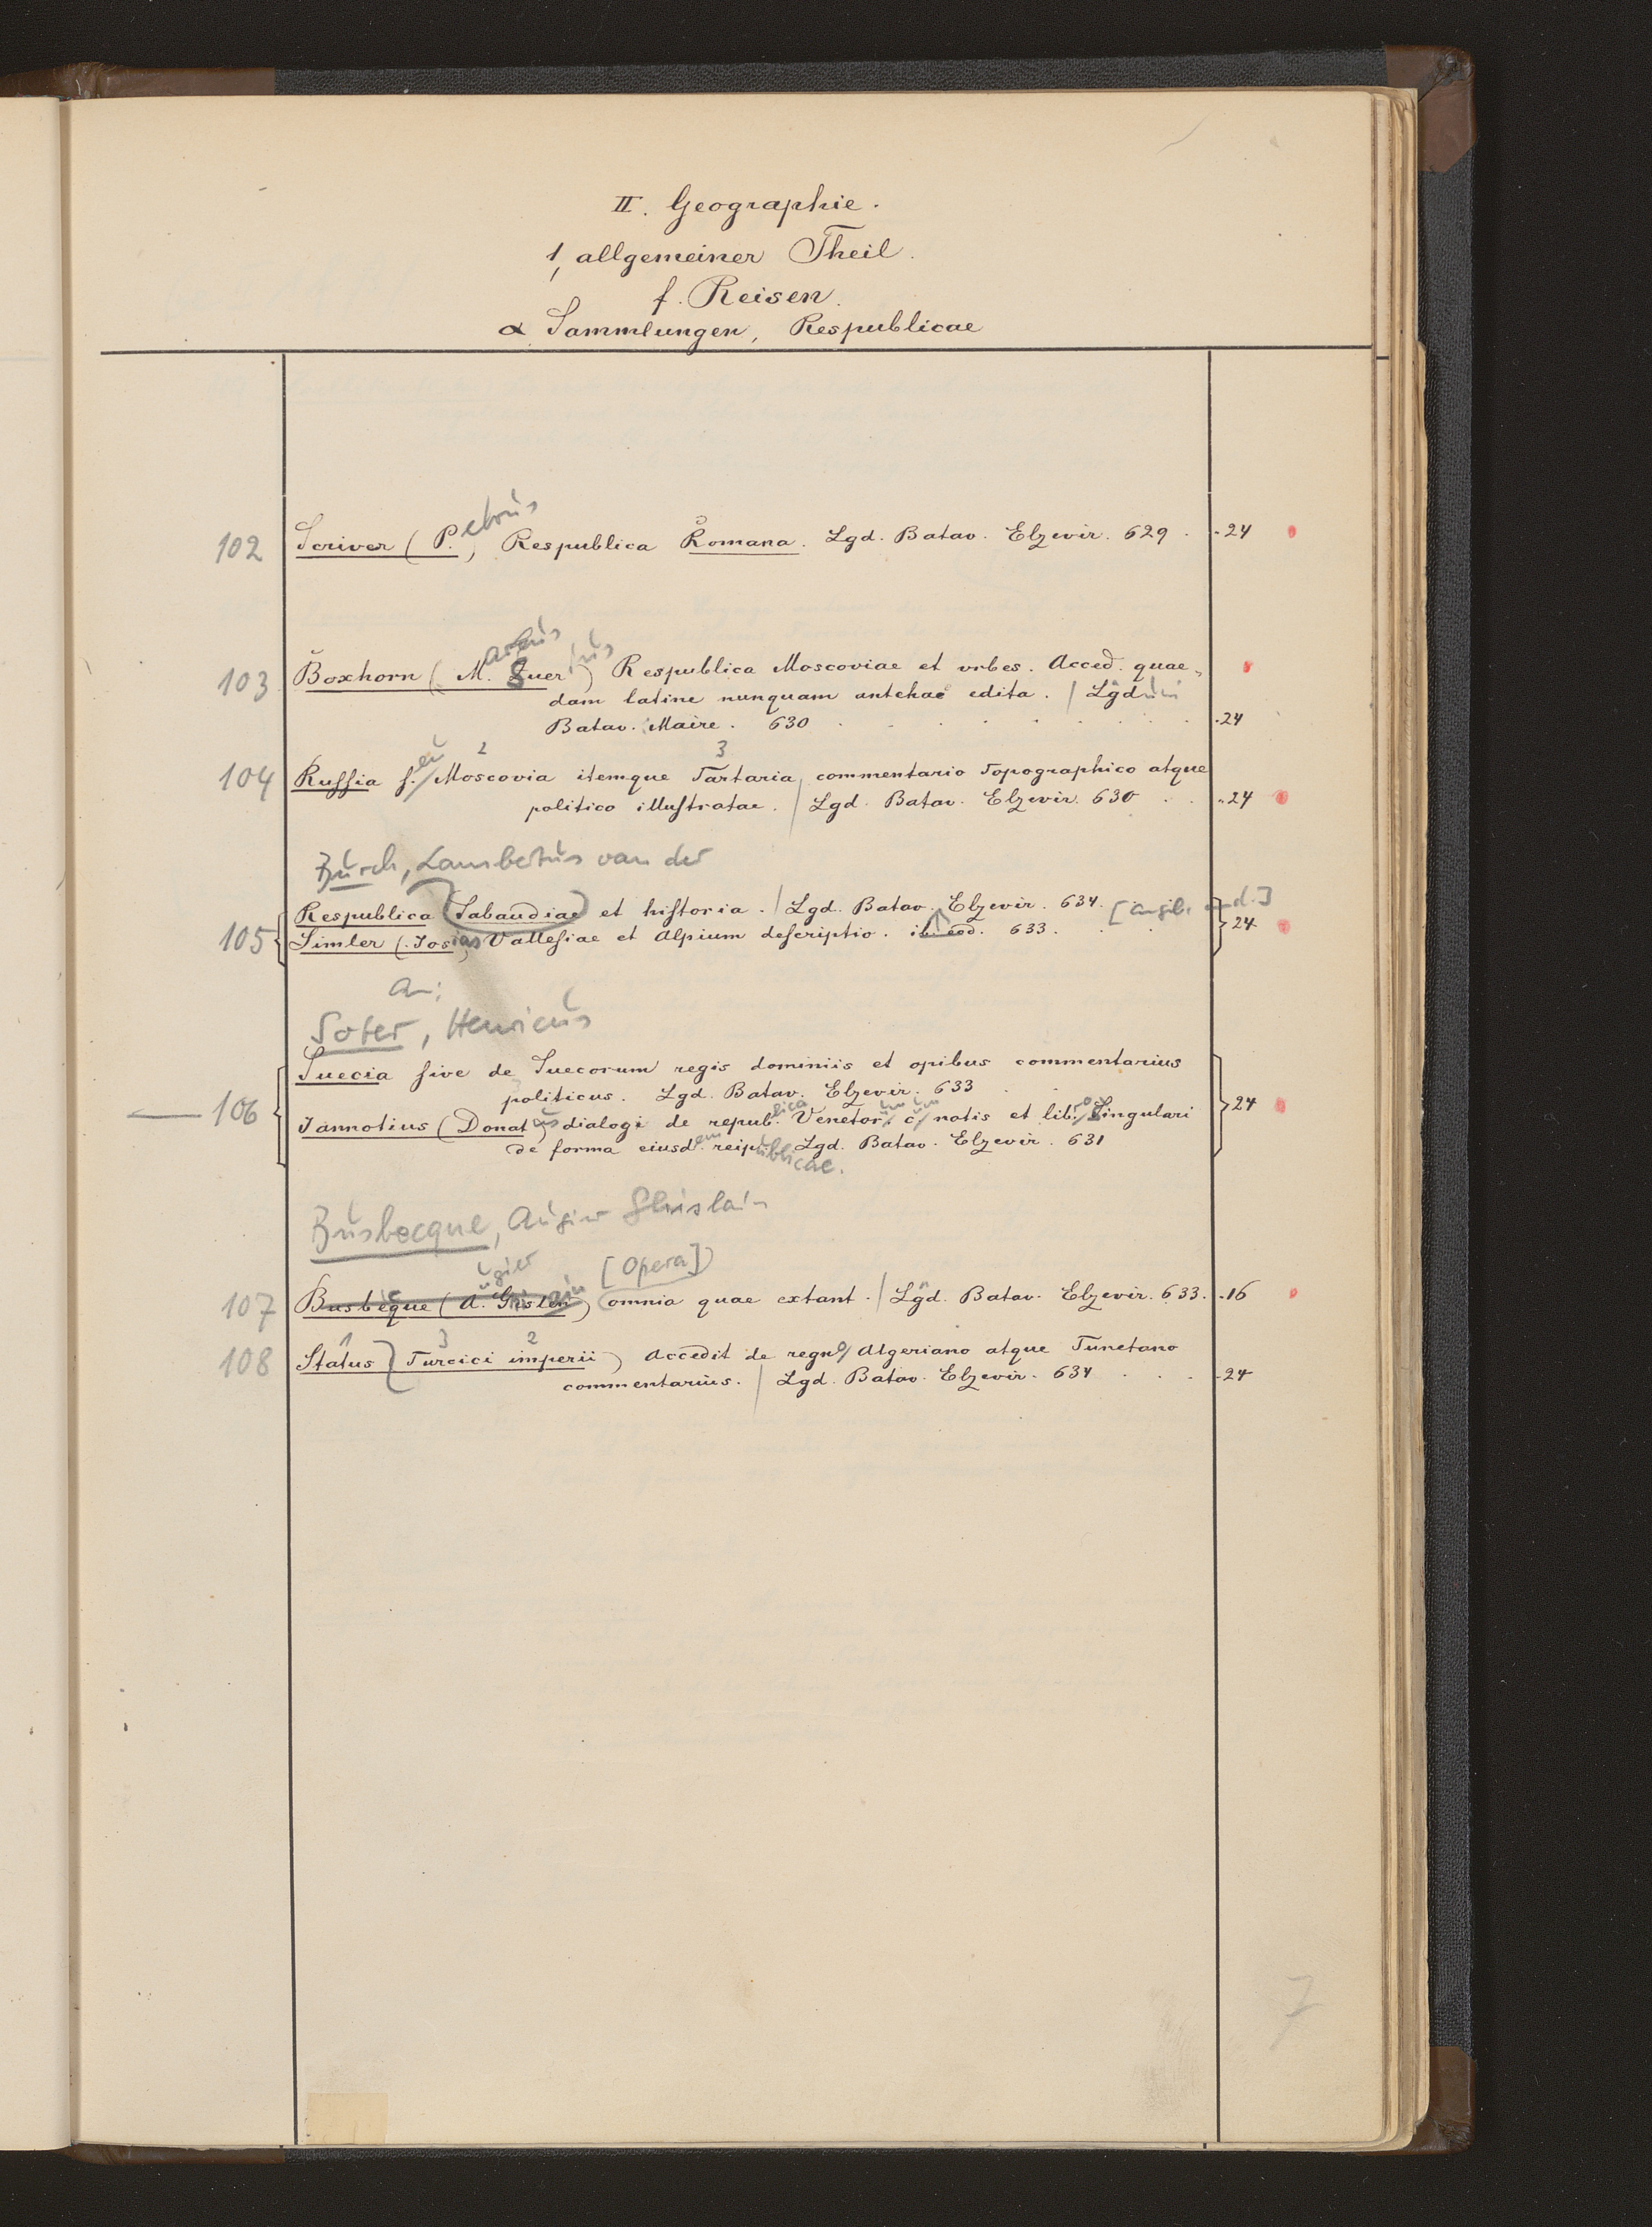 II. Geographie.
1, allgemeiner Theil.
f. Reisen.
α Sammlungen, Respublicae
etrus
102 Scriver (P.), Respublica Romana. Lgd. Batav. Elzevir. 629. .24
arcus ius
103 Boxhorn (M. Zuer) Respublica Moscoviae et vrbes. Acced. quae-
dam latine nunquam antehac edita. / Lgd
Batav. Maire. 630 .24
eu 2 3
104 Russia s. / Moscovia itemque Tartaria, commentario Topographico atque
politico illustratae. / Lgd. Batav. Elzevir. 630 .24
Burch, Lambertus van der
Respublica (Sabaudiae) et historia. / Lgd. Batav. Elzevir. 634.
105 Simler (Josias) Vallesiae et Alpium descriptio. ib. eod. 633. 24
an:
Soter, Henricus
Suecia sive de Suecorum regis dominiis et opibus commentarius
politicus. Lgd. Batav. Elzevir. 633
106 Jannotius (Donatus) dialogi de republica Venetor. c. notis et lib. Singulari 24
de forma eiusdem reipublicae. Lgd. Batav. Elzevir. 631
Busbecque, Augier Ghislain
ugier [Opera]
107 Busbeque (A. Gislen) omnia quae extant. / Lgd. Batav. Elzevir. 633. .16
1 3 2
108 Status (Turcici imperii) Accedit de regno Algeriano atque Tunetano
commentarius. / Lgd. Batav. Elzevir. 634 .24
7